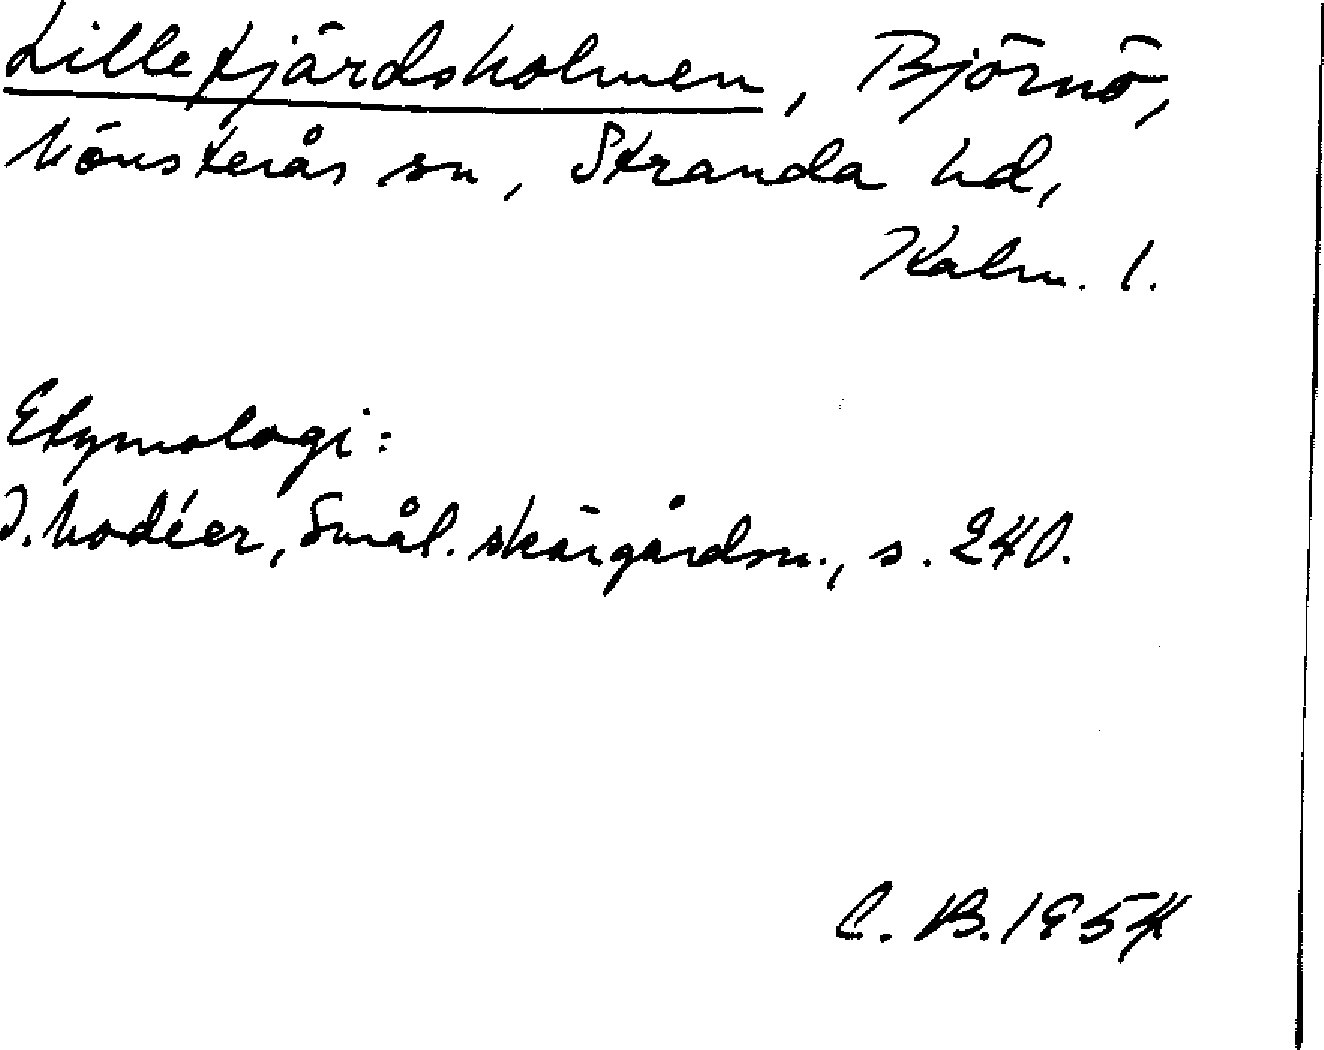 Lillefjärdsholmen, Björnö,
Mönsterås sn, Stranda hd,
Kalm. l.
Etymologi:
I. Modéer, Smål. skärgårdsn., s. 240.
C. B. 1954